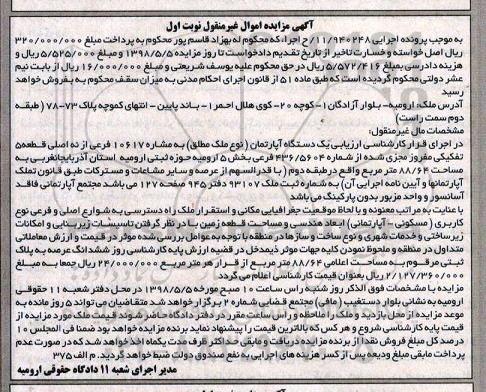 آگهی مزایده اموال غیرمنقول نوبت اول
به موجب پرونده اجرایی ۱۱/۹۴۰۲۴۸/ح اجرا، که محکوم له بهزاد قاسم پور محکوم به پرداخت مبلغ ۳۲۰/۰۰۰/۰۰۰
ریال اصل خواسته و خسارت تاخیر از تاریخ تقدیم دادخواست تا روز مزایده ۱۳۹۸/۵/۵ و مبلغ ۵/۵۲۵/۰۰۰ ریال و
هزینه دادرسی بمبلغ ۵/۵۷۲/۴۱۶ ریال در حق محکوم علیه یوسف شریعتی و مبلغ ۱۶/۰۰۰/۰۰۰ ریال از بابت نیم
عشر دولتی محکوم گردیده است که طبق ماده ۵۱ از قانون اجرای احکام مدنی به میزان سقف محکوم به بفروش خواهد
رسید
آدرس ملک: ارومیه- بلوار آزادگان ۱- کوچه ۲۰- کوی هلال احمر ۱- باند پایین - انتهای کوچه پلاک ۷۳-۷۸ (طبقه
دوم سمت راست)
مشخصات مال غیرمنقول:
در اجرای قرار کارشناسی ارزیابی یک دستگاه آپارتمان (نوع ملک مطلق) به شماره ۱۰۶۱۷ فرعی از نه اصلی قطعه ۵
تفکیکی مفروز مجزی شده از شماره ۴۳۶/۵۶۰۴ فرعی بخش ۵ ارومیه حوزه ثبتی ارومیه استان آذربایجانغربی به
مساحت ۸۸/۶۴ متر مربع واقع در طبقه دوم (با قدرالسهم از عرصه و سایر مشاعات و مشترکات طبق قانون تملک
آپارتمانها و آیین نامه اجرایی آن) به شماره ثبت ملک ۹۳۱۰۷ دفتر ۹۴۵ صفحه ۱۲۷ می باشد مجتمع آپارتمانی فاقد
آسانسور و واحد مزبور بدون پارکینگ می باشد
با عنایت به مراتب معنونه و با لحاظ موقعیت جغرافیایی مکانی و استقرار ملک راه دسترسی به شوارع اصلی و فرعی نوع
کاربری (مسکونی - آپارتمانی) ابعاد هندسی و مساحت قطعه زمین با در نظر گرفتن تاسیسات زیربنایی و امکانات
زیرساختی و خدمات شهری و نوع ساخت و سازها در منطقه با توجه به عوامل بررسی شده موثر در قیمت و ارزش معاملاتی
متداول در منطقه و ملحوظ نمودن کلیه جهات موثر ذیمدخل در قضیه ارزش پایه کارشناسی روز ششدانگ عرصه به پلاک
ثبتی مرقوم به مساحت اعلامی ۸۸/۶۴ متر مربع از قرار هر متر مربع ۲۴/۰۰۰/۰۰۰ ریال جمعا به مبلغ
۲/۱۲۷/۳۶۰/۰۰۰ ریال بعنوان قیمت کارشناسی اعلام می گردد
مزایده با مشخصات فوق الذکر روز شنبه راس ساعت ۱۰ صبح مورخه ۱۳۹۸/۵/۵ در محل دفتر شعبه ۱۱ حقوقی
ارومیه به نشانی بلوار دستغیب (مافی) مجتمع قضایی شماره ۲ برگزار خواهد شد متقاضیان می توانند ۵ روز مانده به
موعد مزایده از محل بازدید و ملک را ملاحظه و راس ساعت مقرر در دفتر دادگاه حاضر شوند قیمت ملک مورد مزایده از
قیمت پایه کارشناسی شروع و هر کس که بالاترین قیمت را پیشنهاد نماید برنده مزایده خواهد بود ضمنا فی المجلس ۱۰
درصد کل مبلغ فروش نقدا از برنده مزایده دریافت و مابقی حداکثر ظرف مدت یکماه اخذ خواهد شد که در صورت عدم
پرداخت مابقی مبلغ ودیعه پس از کسر هزینه های اجرایی به نفع صندوق دولت ضبط خواهد گردید. م الف ۳۷۵
مدیر اجرای شعبه ۱۱ دادگاه حقوقی ارومیه